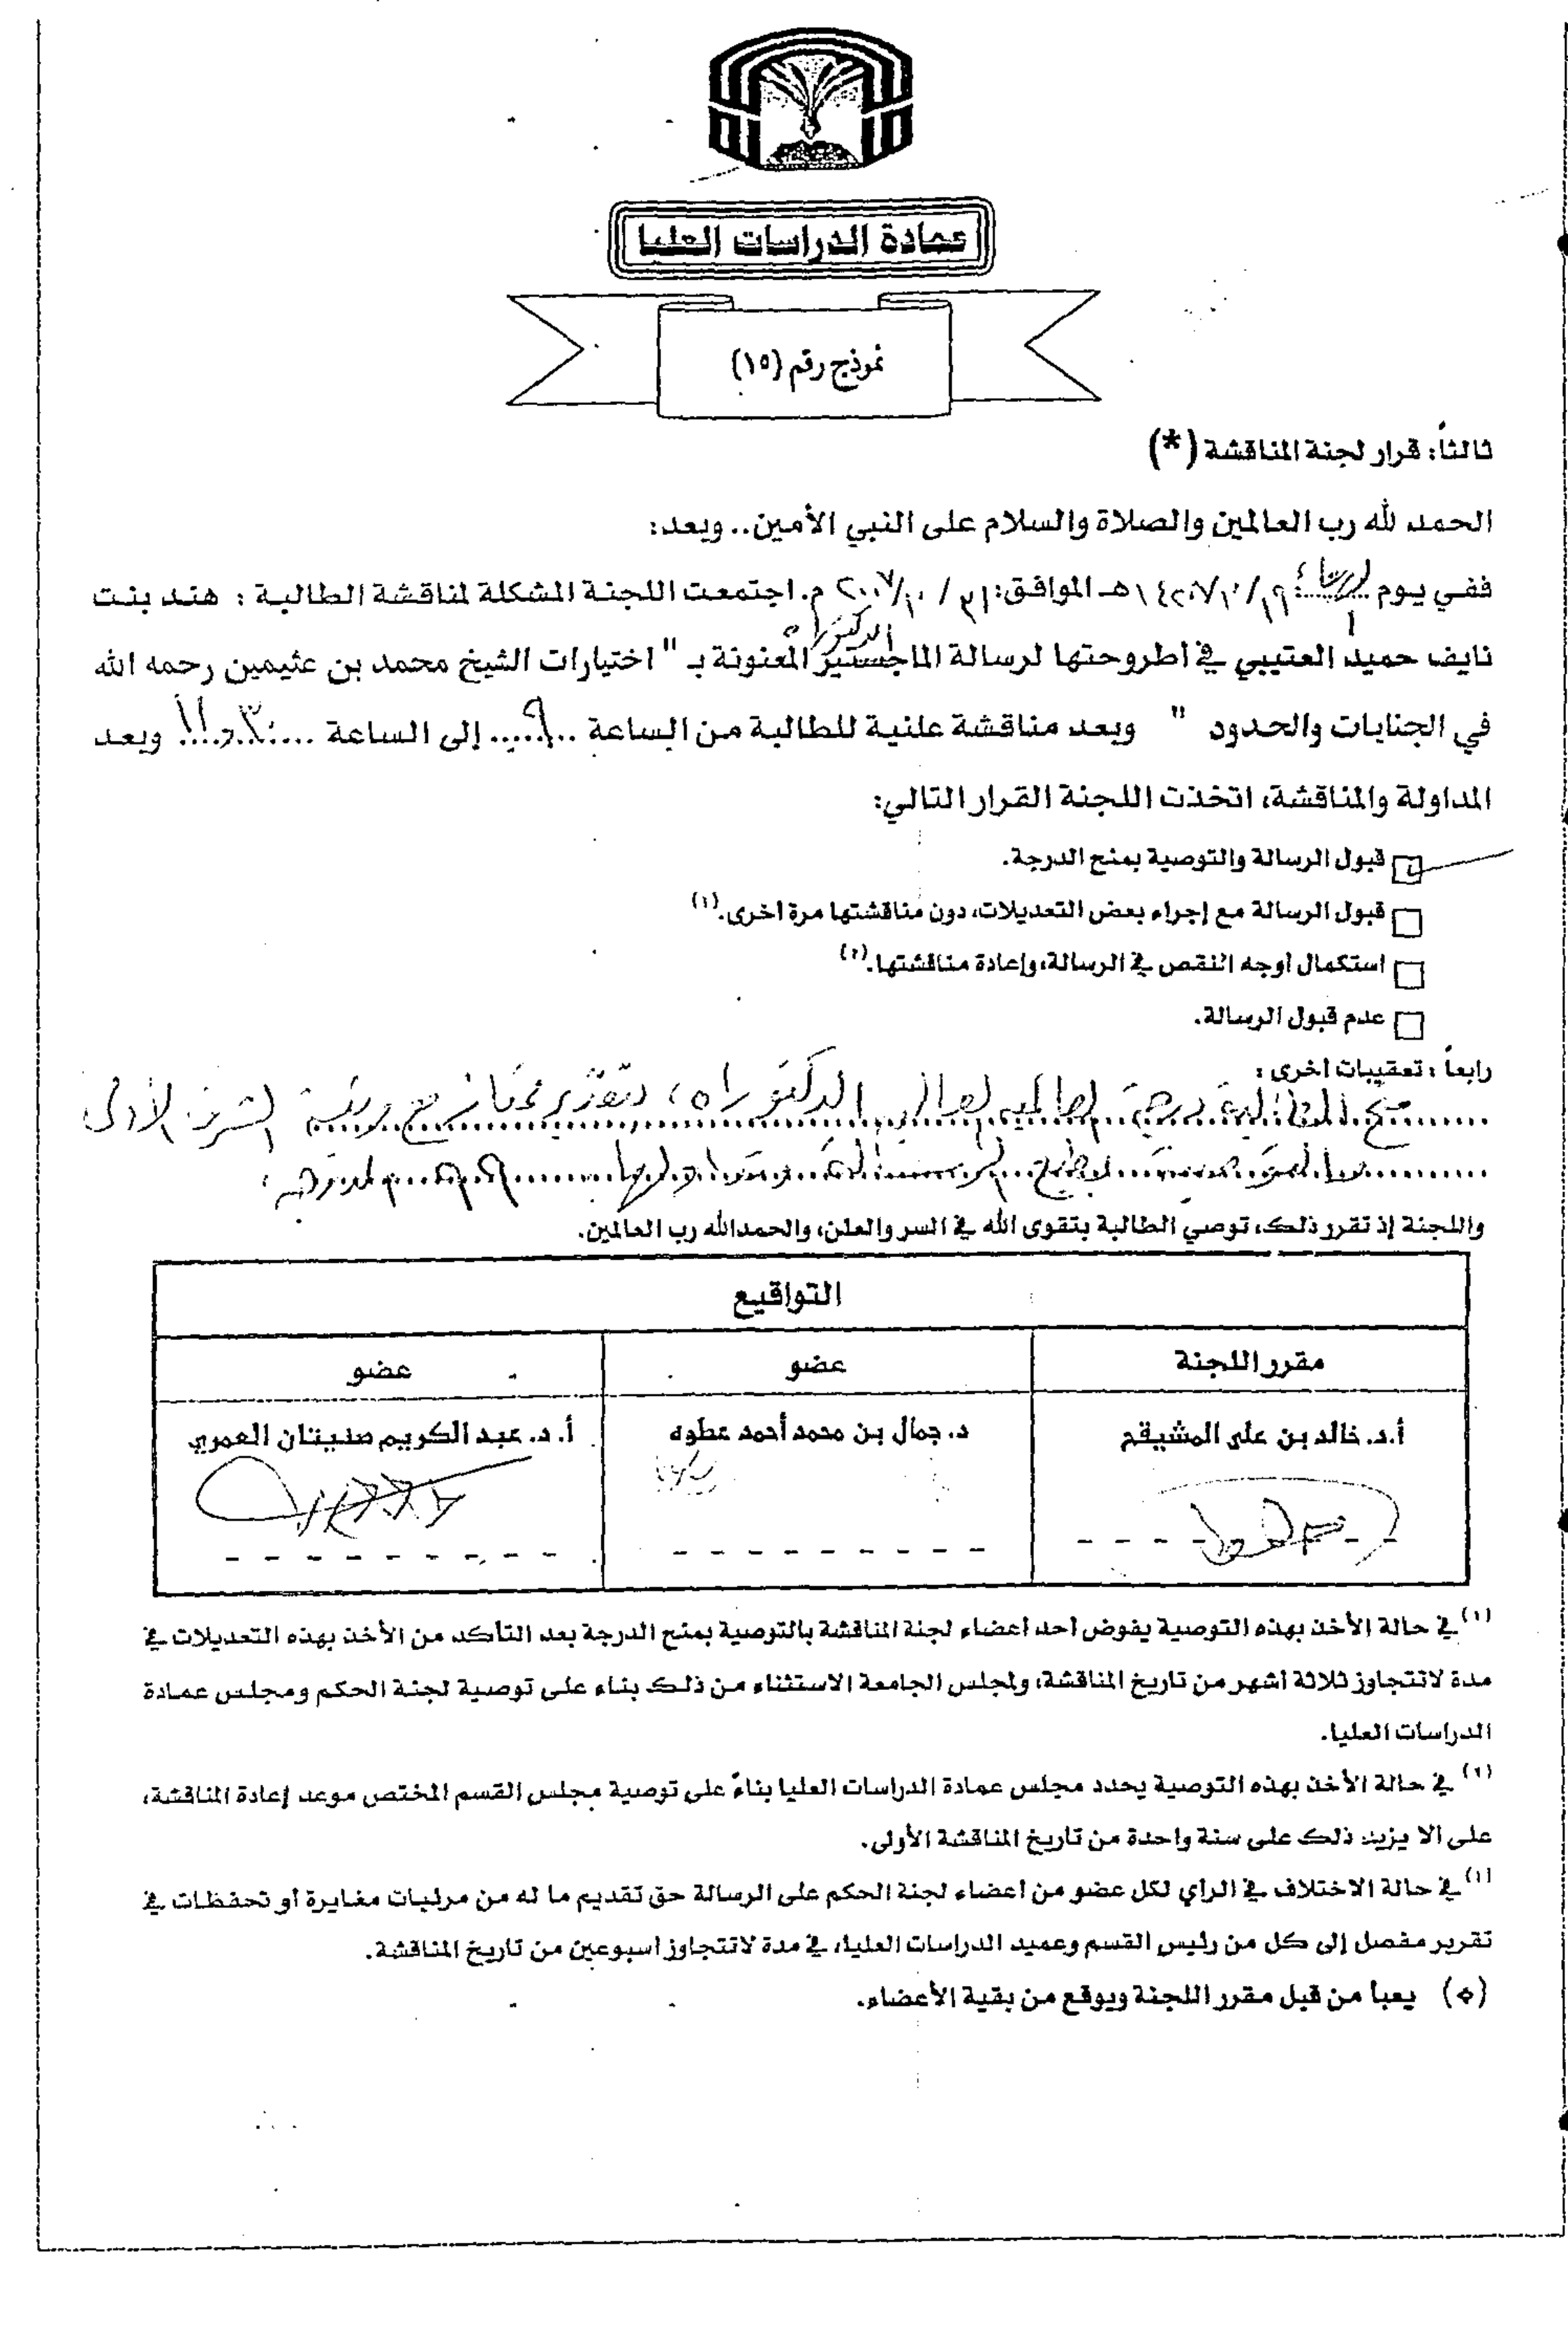 عمادة الدراسات العليا
نموذج رقم (١٥)
ثالثاً: قرار لجنة المناقشة (*)
الحمد لله رب العالمين والصلاة والسلام على النبي الأمين.. وبعد:
ففي يوم هـ الموافق: م. اجتمعت اللجنة المشكلة لمناقشة الطالبة : هند بنت
الدكتوراه
نايف حميد العتيبي في أطروحتها لرسالة الماجستير المعنونة بـ " اختيارات الشيخ محمد بن عثيمين رحمه الله
في الجنايات والحدود " وبعد مناقشة علنية للطالبة من الساعة ...٩... إلى الساعة وبعد
المداولة والمناقشة، اتخذت اللجنة القرار التالي:
قبول الرسالة والتوصية بمنح الدرجة.
قبول الرسالة مع إجراء بعض التعديلات، دون مناقشتها مرة أخرى.(١)
استكمال أوجه النقص في الرسالة، وإعادة مناقشتها.(٢)
عدم قبول الرسالة.
رابعاً : تعقيبات أخرى :
منح الطالبة درجة العالمية العالية الدكتوراه، بتقدير ممتاز مع مرتبة الشرف الأولى
واللجنة إذ تقرر ذلك، توصي الطالبة بتقوى الله في السر والعلن، والحمدالله رب العالمين.
التواقيع
مقرر اللجنة عضو عضو
أ.د. خالد بن علي المشيقح د. جمال بن محمد أحمد عطوه أ. د. عبد الكريم صنيتان العمري
(١) في حالة الأخذ بهذه التوصية يفوض أحد أعضاء لجنة المناقشة بالتوصية بمنح الدرجة بعد التأكد من الأخذ بهذه التعديلات في
مدة لاتتجاوز ثلاثة أشهر من تاريخ المناقشة، ولمجلس الجامعة الاستثناء من ذلك بناء على توصية لجنة الحكم ومجلس عمادة
الدراسات العليا.
(٢) في حالة الأخذ بهذه التوصية يحدد مجلس عمادة الدراسات العليا بناءً على توصية مجلس القسم المختص موعد إعادة المناقشة،
على ألا يزيد ذلك على سنة واحدة من تاريخ المناقشة الأولى.
(١) في حالة الاختلاف في الرأي لكل عضو من أعضاء لجنة الحكم على الرسالة حق تقديم ما له من مرئيات مغايرة أو تحفظات في
تقرير مفصل إلى كل من رئيس القسم وعميد الدراسات العليا، في مدة لاتتجاوز أسبوعين من تاريخ المناقشة.
(*) يعبأ من قبل مقرر اللجنة ويوقع من بقية الأعضاء.